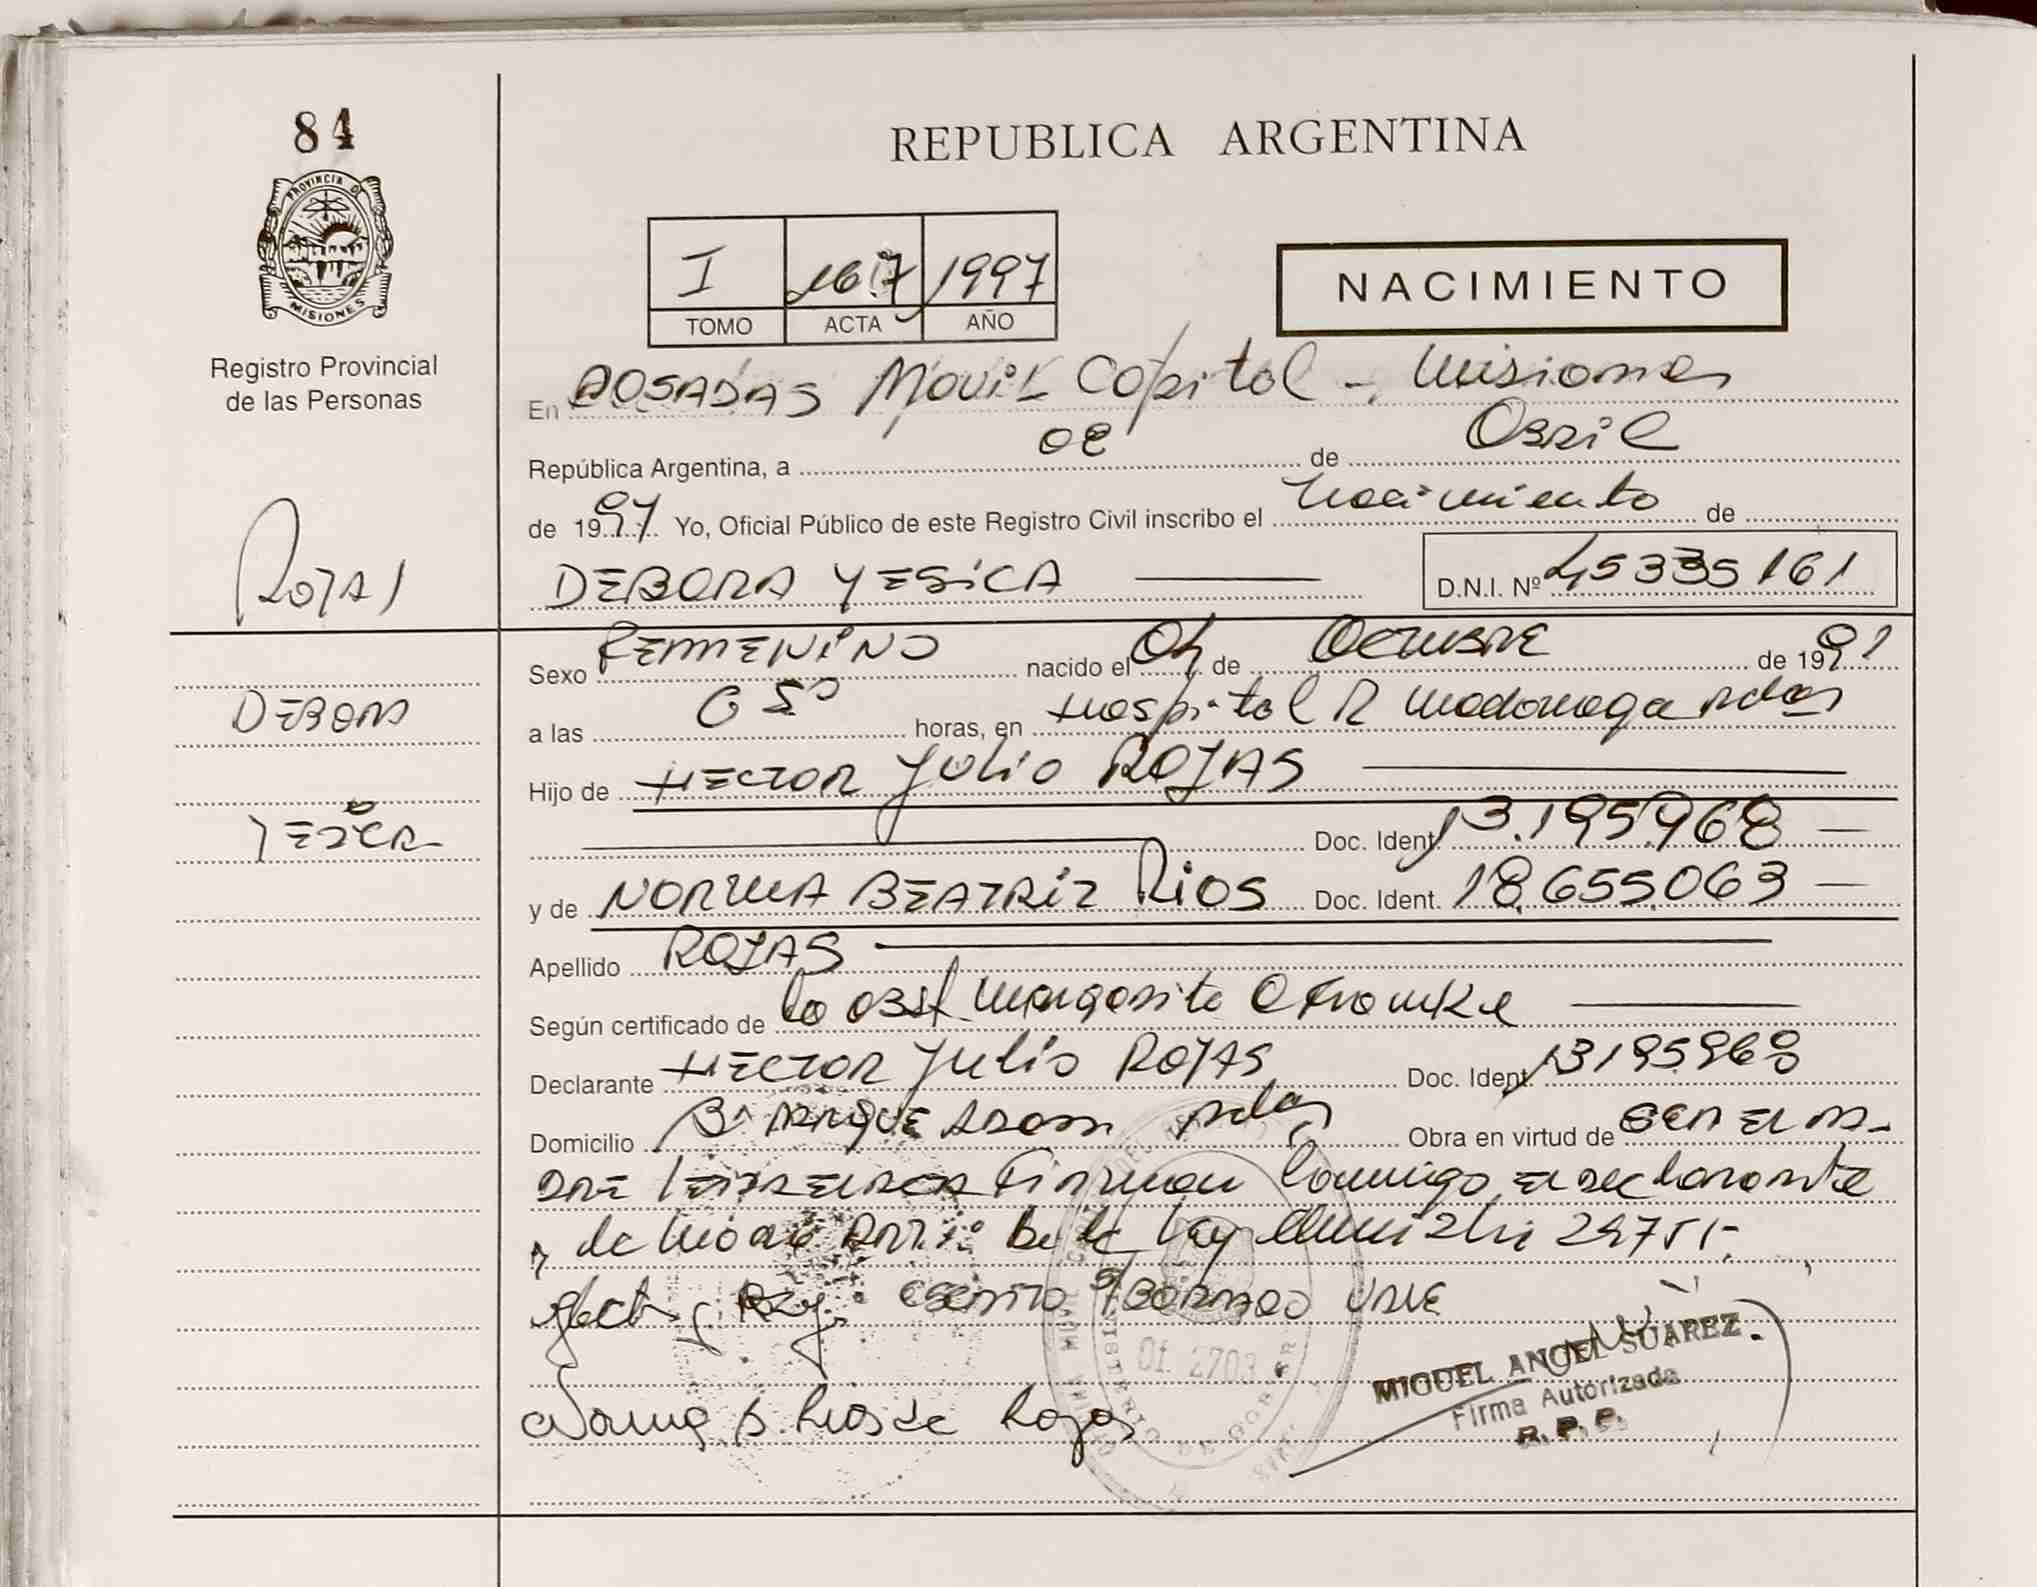 84
PROVINCIA D
MISIONES
Registro Provincial
de las Personas
ROJAS
DEBORA
YESICA
REPUBLICA ARGENTINA
I 1997
TOMO ACTA AÑO
NACIMIENTO
En POSADAS MOVIL Capital - Misiones
República Argentina, a 08 de Abril
de 1997 Yo, Oficial Público de este Registro Civil inscribo el nacimiento de
DEBORA YESICA D.N.I. Nº 45335161
Sexo FEMENINO nacido el 04 de OCTUBRE de 1991
a las horas, en Hospital R Madariaga Pdas
Hijo de HECTOR Julio ROJAS
Doc. Ident. 13.195.968
y de NORMA BEATRIZ RIOS Doc. Ident. 18.655.063
Apellido ROJAS
Según certificado de la obst Margarita
Declarante HECTOR Julio ROJAS Doc. Ident. 13195968
Domicilio Bº Pdas Obra en virtud de
Firman conmigo el declarante
y la de la Ley
escrito s/borrado VALE
Of. 2703
MIGUEL ANGEL SUAREZ
Firma Autorizada
R. P. P.
Norma B. Rios de Rojas